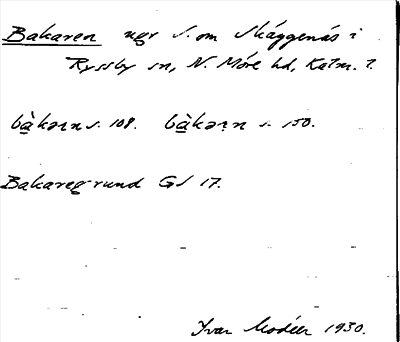 Bakaren ugr S. om Skäggenäs i
Ryssby sn, N. Möre hd, Kalm. l.
bàkəɳ s. 108. bàkəɳ s. 150.
Bakaregrund GS 17.
Ivar Modéer 1930.